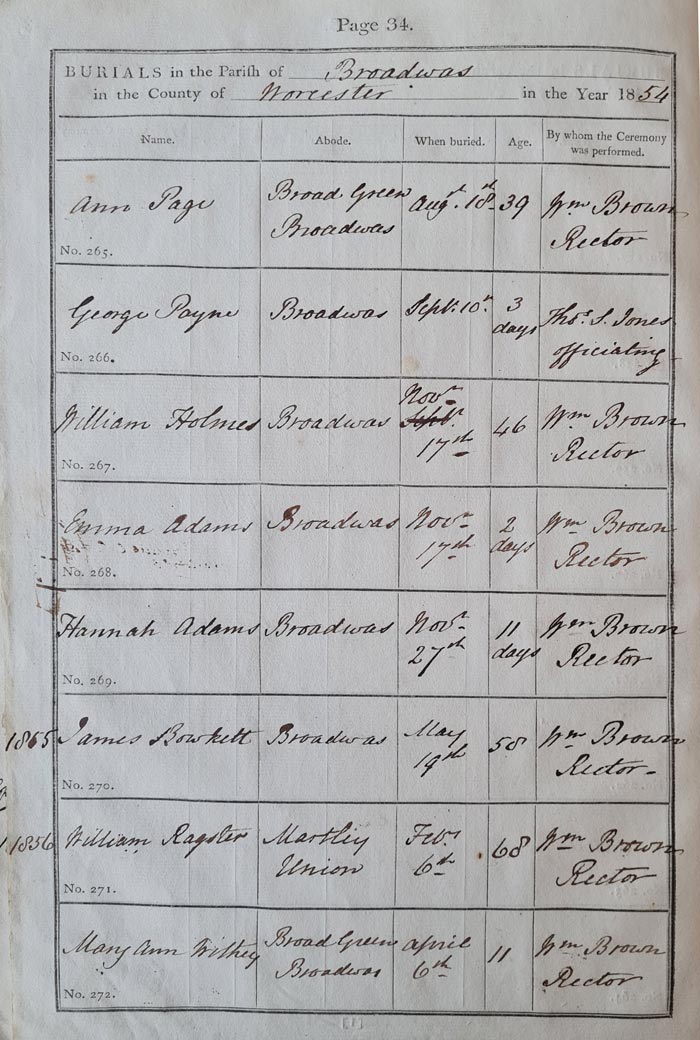 Page 34.
BURIALS in the Parish of Broadwas
in the County of Worcester in the Year 1854
Name. Abode. When buried. Age. By whom the Ceremony was performed.
Ann Page Broad Green Augst. 18th 39 Wm Brown
Broadwas Rector
No. 265.
George Payne Broadwas Sept. 10th. 3 Thos. S. Jones
days officiating
No. 266.
Novr
William Holmes Broadwas Septr. 46 Wm Brown
17th Rector
No. 267.
Emma Adams Broadwas Novr 2 Wm Brown
17th days Rector
No. 268.
Hannah Adams Broadwas Novr 11 Wm Brown
27th days Rector
No. 269.
1855 James Bowkett Broadwas May 58 Wm Brown
19th Rector
No. 270.
1856 William Ragster Martley Feby 68 Wm Brown
Union 6th Rector
No. 271.
Mary Ann Withey Broad Green April 11 Wm Brown
Broadwas 6th Rector
No. 272.